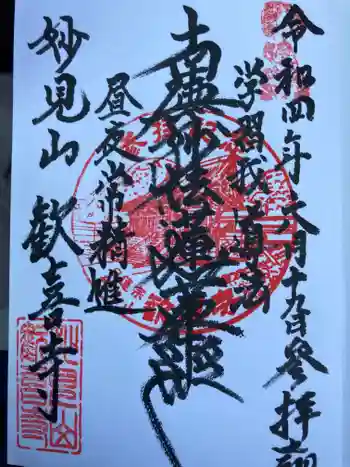 令和四年六月十九日参拝
学習我道法
南無妙法蓮華経
昼夜常精進
妙見山 歓喜寺